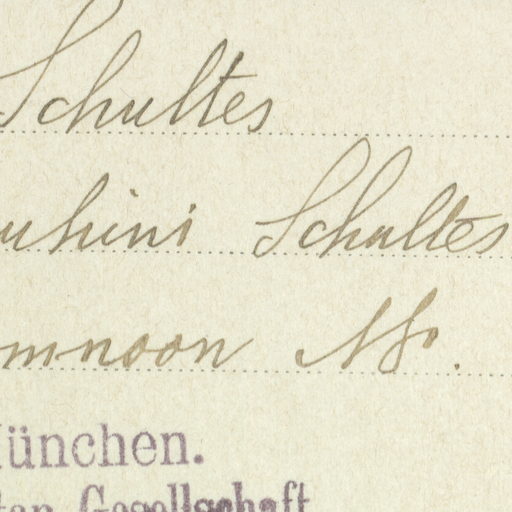 Schultes
uhini Schultes
mnoon
ünchen.
Gesellschaft